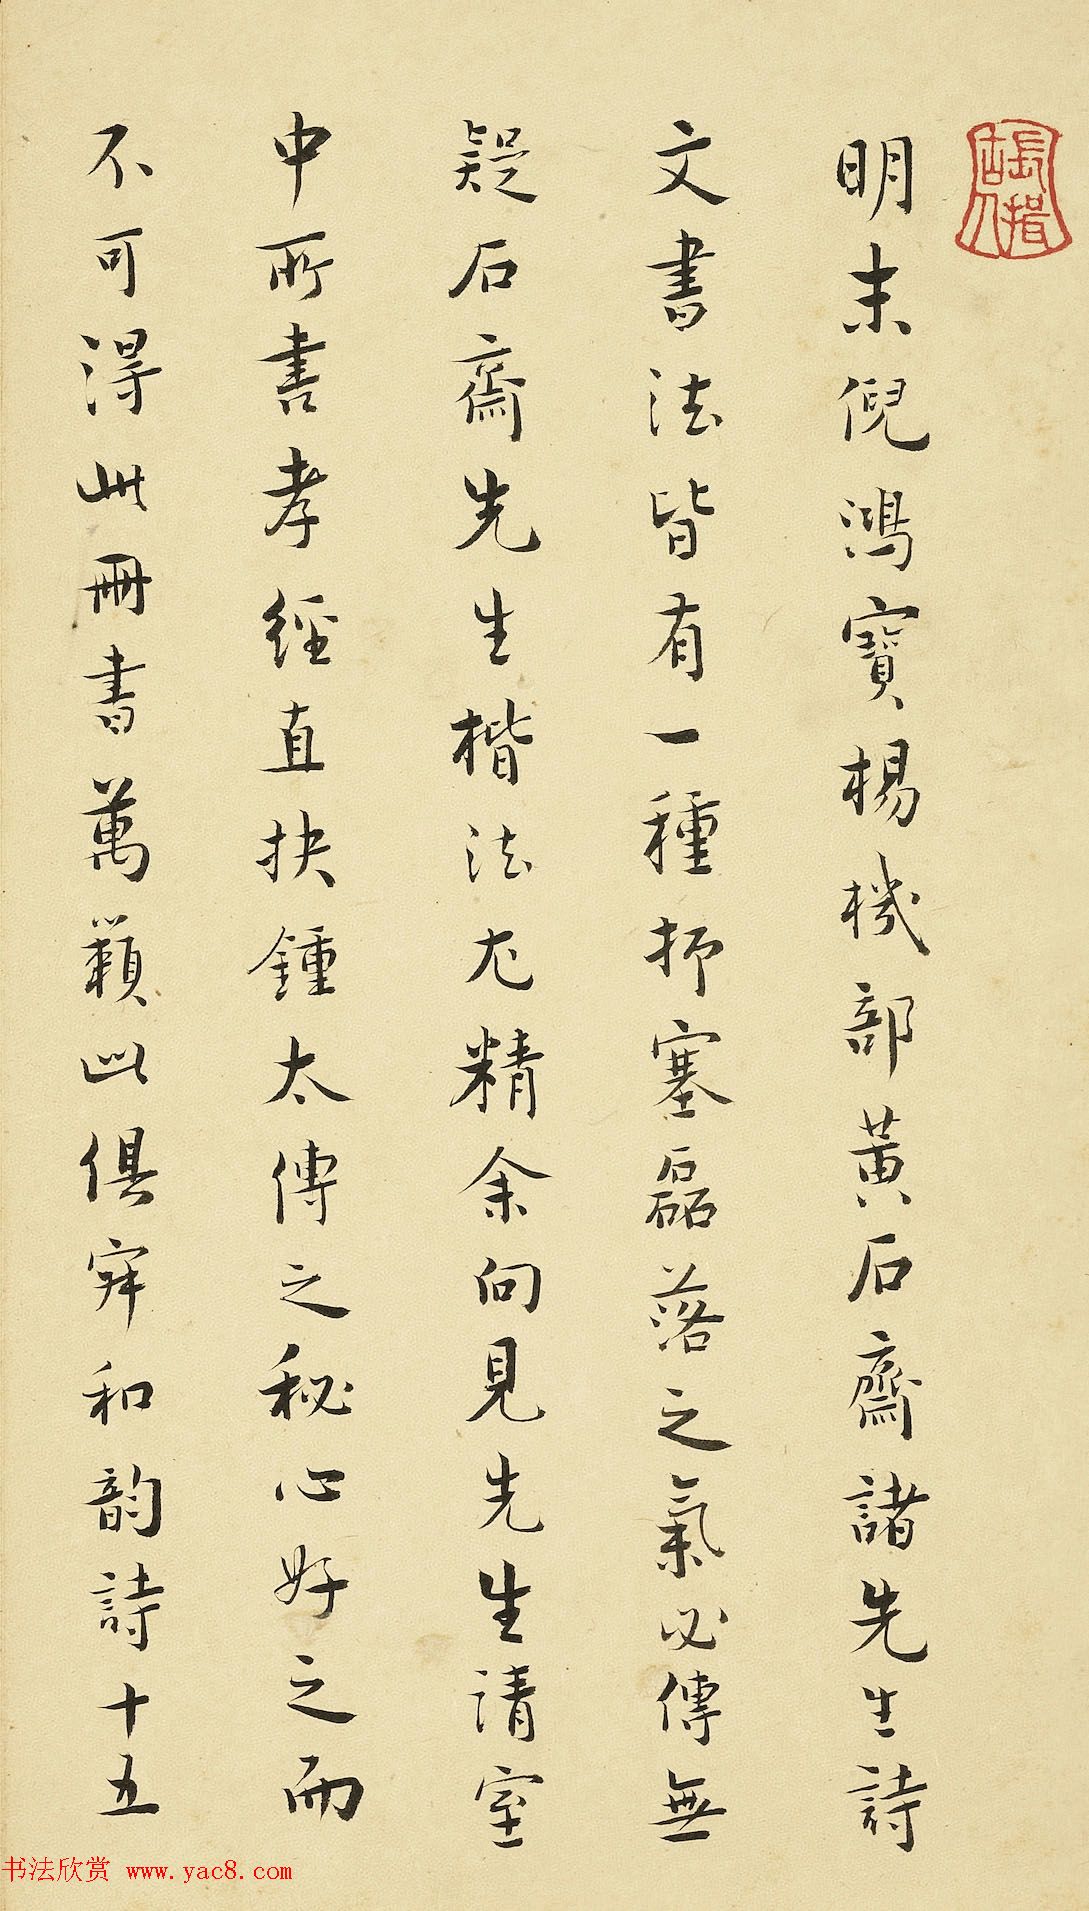 明末倪鴻寶楊機部黃石齋諸先生詩
文書法皆有一種抑塞磊落之氣必傳無
疑石齋先生楷法尤精余向見先生請室
中所書孝經直抉鍾太傅之秘心好之而
不可得此冊書萬籟此俱寂和韵詩十五
书法欣赏 www.yac8.com